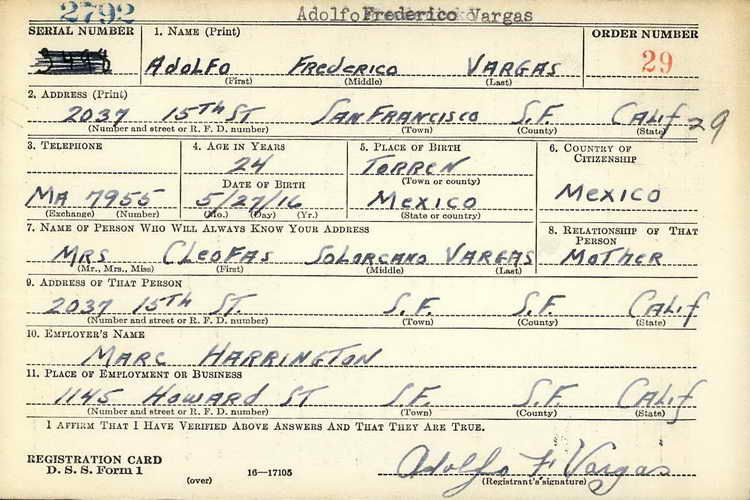 2792
Adolfo Frederico Vargas
SERIAL NUMBER
1. NAME (Print)
ORDER NUMBER
ADOLFO FREDERICO VARGAS
29
(First) (Middle) (Last)
2. ADDRESS (Print)
2037 15TH ST SAN FRANCISCO S.F. CALIF 29
(Number and street or R. F. D. number) (Town) (County) (State)
3. TELEPHONE
MA 7955
(Exchange) (Number)
4. AGE IN YEARS
24
DATE OF BIRTH
5/27/16
(Mo.) (Day) (Yr.)
5. PLACE OF BIRTH
TORREN
(Town or county)
MEXICO
(State or country)
6. COUNTRY OF
CITIZENSHIP
MEXICO
7. NAME OF PERSON WHO WILL ALWAYS KNOW YOUR ADDRESS
MRS CLEOFAS SOLORCANO VARGAS
(Mr., Mrs., Miss) (First) (Middle) (Last)
8. RELATIONSHIP OF THAT
PERSON
MOTHER
9. ADDRESS OF THAT PERSON
2037 15TH ST. S.F. S.F. CALIF
(Number and street or R. F. D. number) (Town) (County) (State)
10. EMPLOYER'S NAME
MARC HARRINGTON
11. PLACE OF EMPLOYMENT OR BUSINESS
1145 HOWARD ST S.F. S.F. CALIF
(Number and street or R. F. D. number) (Town) (County) (State)
I AFFIRM THAT I HAVE VERIFIED ABOVE ANSWERS AND THAT THEY ARE TRUE.
REGISTRATION CARD
D. S. S. Form 1
(over)
16—17105
Adolfo F Vargas
(Registrant's signature)